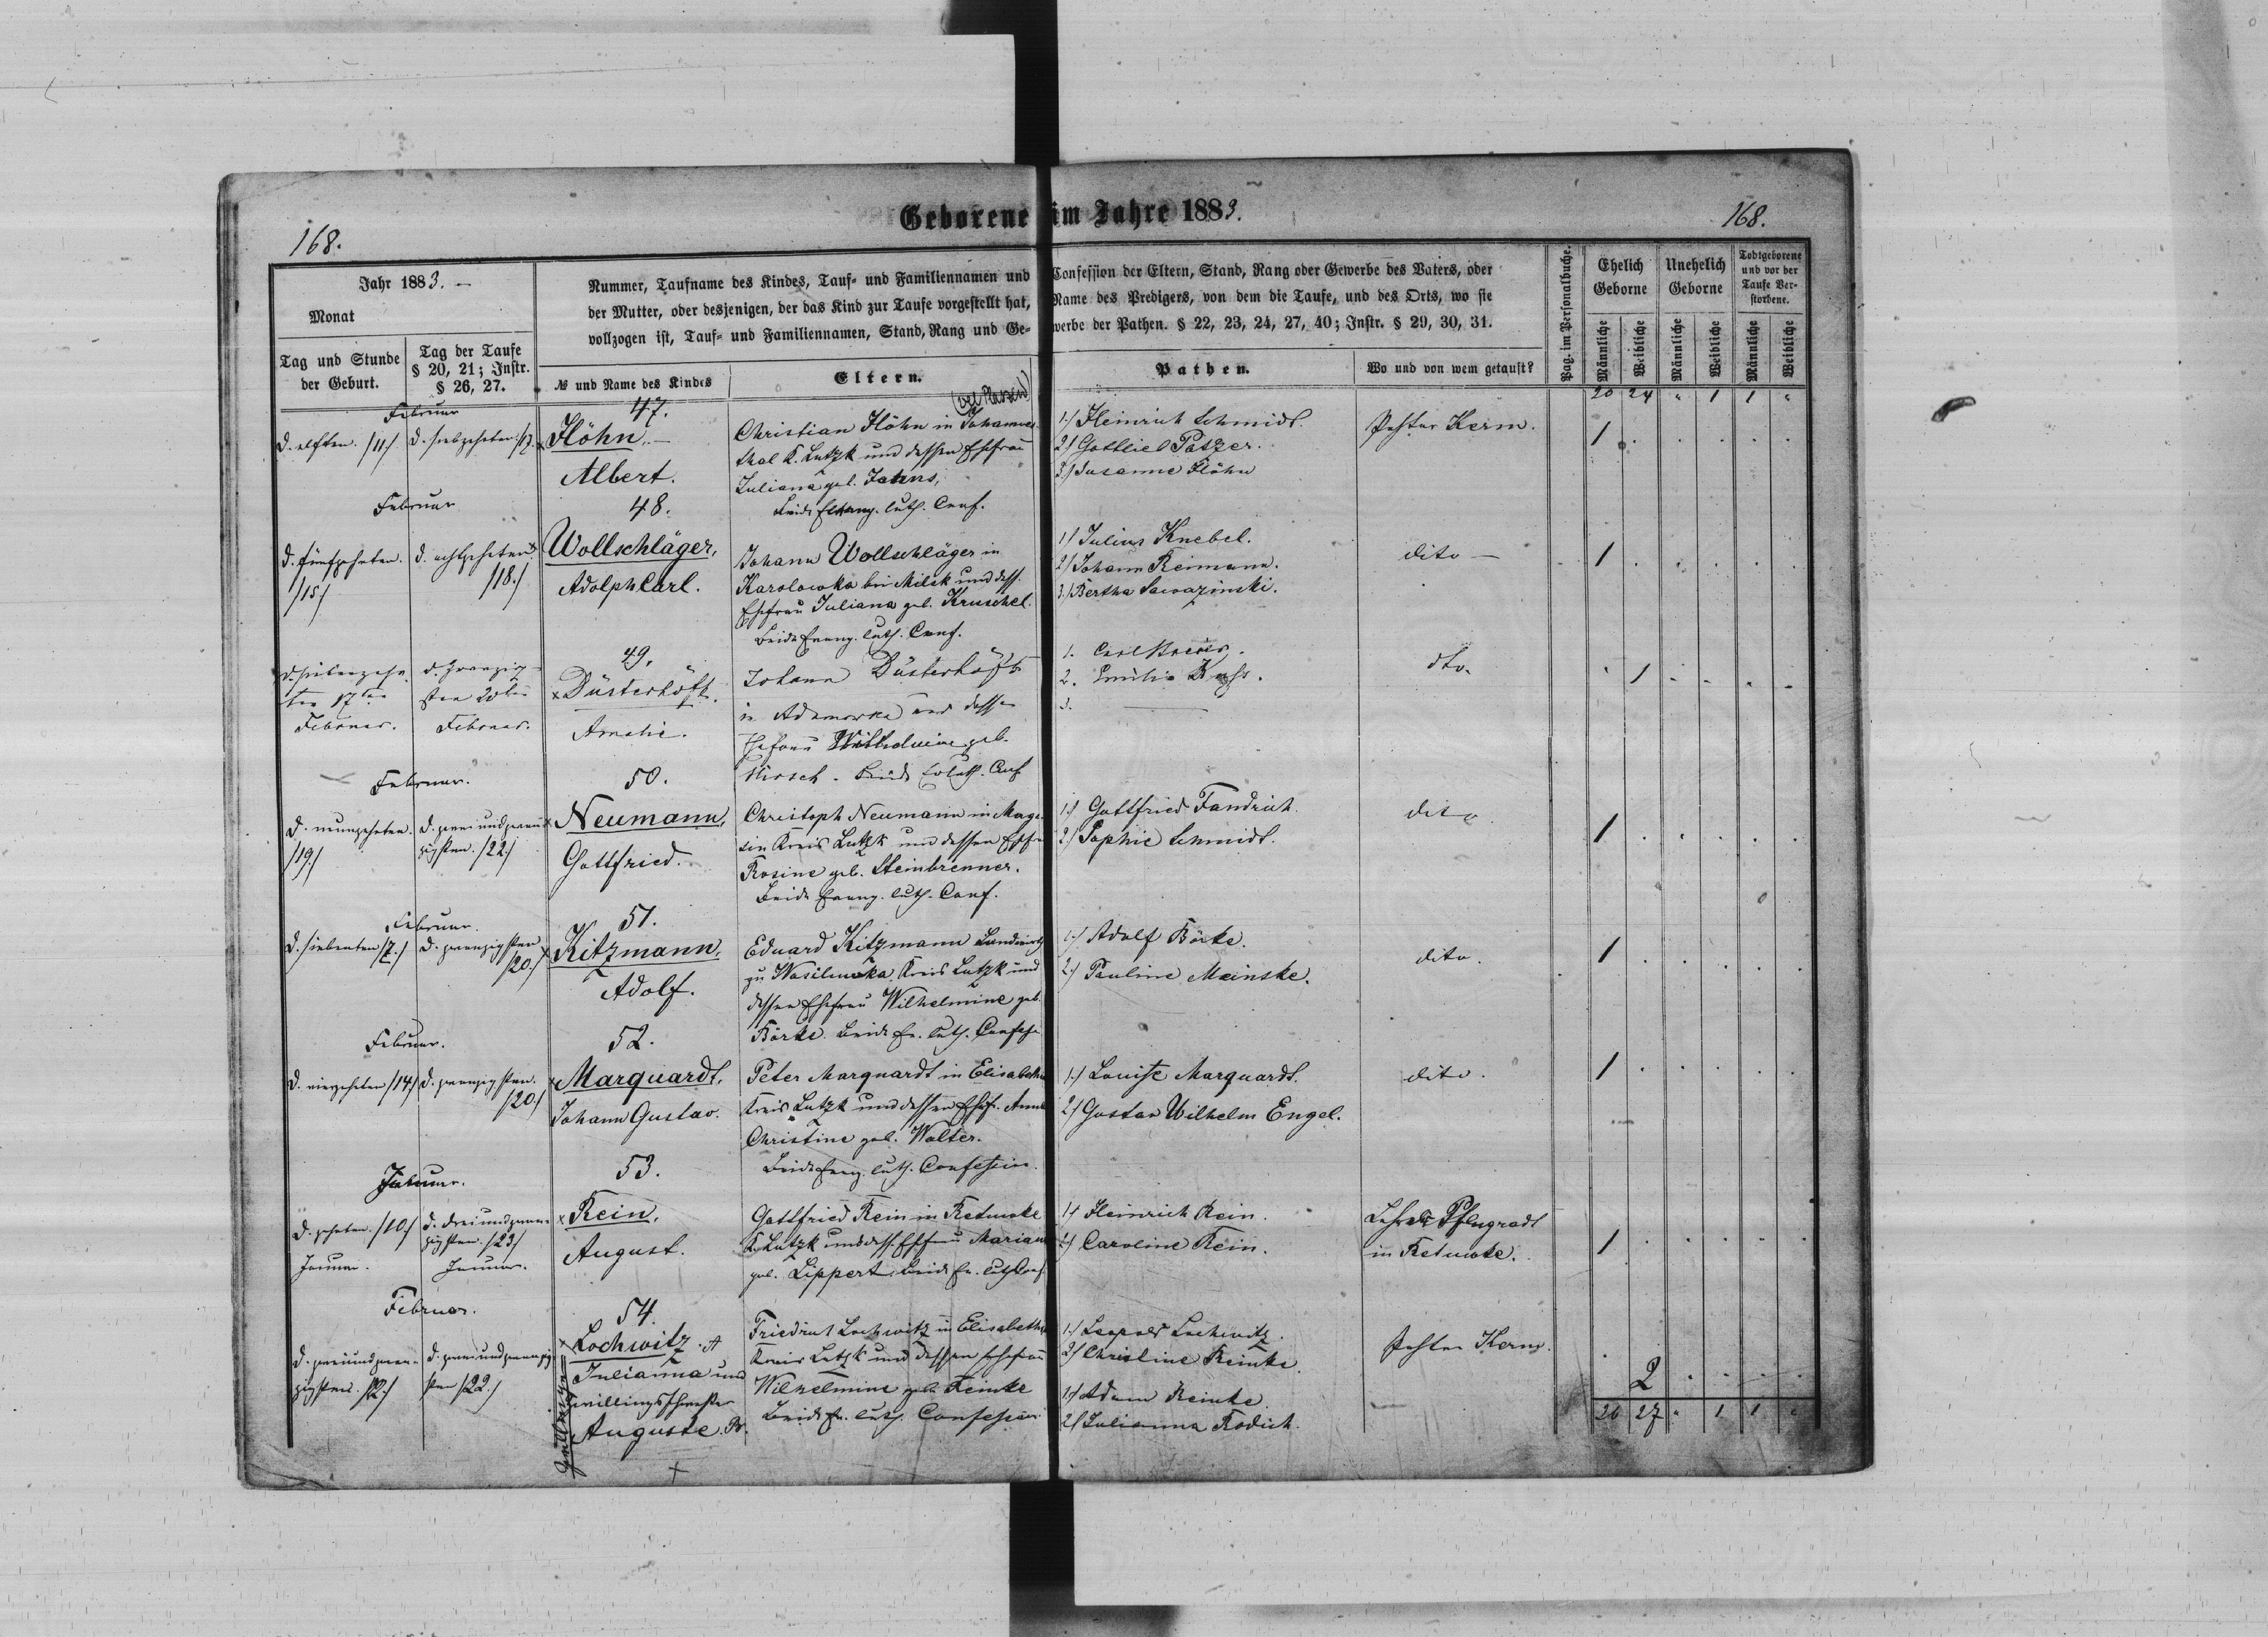 168.
Geborene im Jahre 1883.
168.
Jahr 1883. –
Monat
Tag und Stunde
der Geburt.
Tag der Taufe
§ 20, 21; Instr.
§ 26, 27.
Nummer, Taufname des Kindes, Tauf- und Familiennamen und Confession der Eltern, Stand, Rang oder Gewerbe des Vaters, oder
der Mutter, oder desjenigen, der das Kind zur Taufe vorgestellt hat, Name des Predigers, von dem die Taufe, und des Orts, wo sie
vollzogen ist, Tauf- und Familiennamen, Stand, Rang und Gewerbe der Pathen. § 22, 23, 24, 27, 40; Instr. § 29, 30, 31.
№ und Name des Kindes
Eltern.
Pathen.
Wo und von wem getauft?
Pag. im Personalbuche.
Ehelich
Geborne
Unehelich
Geborne
Todtgeborene
und vor der
Taufe Ver-
storbene.
Männliche
Weibliche
Männliche
Weibliche
Männliche
Weibliche
20 24 " 1 1 "
Februar
d. elften. /11/.
d. siebzehnten /17.
47.
Höhn. –
Albert.
Christian Höhn in Johannes-
thal K. Lutzk und dessen Ehefrau
Juliana geb. Jahns,
beide Evang. luth. Conf.
1./ Heinrich Schmidt.
2./ Gottlieb Patzer.
3./ Susanne Höhn
Pastor Kerm.
1
Februar
d. fünfzehnten.
/15/
d. achtzehnten
/18./
48.
Wollschläger,
Adolph Carl.
Johann Wollschläger in
Karolowka bei Milsk und dess.
Ehefrau Juliana geb. Kruschel.
beide Evang. luth. Conf.
1/ Julius Knebel.
2/ Johann Reimann.
3./ Bertha Sawazinski.
dito –
1
d. siebenzehn
ten 17ten
Februar.
d. zwanzig-
sten 20ten
Februar.
49.
Düsterhöft.
Amalie.
Johann Düsterhöft
in Adamowka und dessen
Ehefrau Wilhelmine geb.
Hirsch. beide Ev luth. Conf
1. Carl
2. Emilie
3.
dto.
1
Februar.
d. neunzehnten.
/19/
d. zwei und zwan
zigsten. /22/
50.
Neumann,
Gottfried.
Christoph Neumann in
Kreis Lutzk und dessen Ehefr
Rosine geb. Steinbrenner.
beide Evang. luth. Conf.
1./ Gottfried Fandrich.
2./ Sophie Schmidt.
dito
1
Februar.
d. siebenten /7./
d. zwanzigsten
/20./
51.
Kitzmann,
Adolf.
Eduard Kitzmann Landwirth
zu Wasilewka Kreis Lutzk und
dessen Ehefrau Wilhelmine geb.
Börke. beide Ev. luth. Confess
1./ Adolf Börke.
2./ Pauline Meinske.
dito.
1
Februar.
d. vierzehnten /14/
d. zwanzigsten.
/20./
52.
Marquardt,
Johann Gustav.
Peter Marquardt in Elisabethin
Kreis Lutzk und dessen Ehefr. Anna
Christine geb. Walter.
beide Evang. luth. Confession.
1./ Louise Marquardt.
2/ Gustav Wilhelm Engel.
dito.
1
d. zehnten. /10./
Januar.
d. dreiundzwan-
zigsten. /23/
Januar.
53.
Rein,
August.
Gottfried Rein in
K. Lutzk und dess. Ehefrau
geb. Lippert beide Ev. luth Conf
1/ Heinrich Rein.
2/ Caroline Rein.
Lehrer Pflugradt
in
1
Februar.
d. zweiundzwan-
zigsten.
d. zwei und zwanzig
sten /22./
54.
Lochwitz.
Julianna und
Zwillingsschwester
Auguste.
Friedrich Lochwitz in
Kreis Lutzk und dessen Ehefrau
Wilhelmine geb. Reinke
beide Ev. luth. Confession
1./ Leopold Lochwitz.
2/ Christine Reinke.
1./ Adam Reinke
2/ Julianna Rodich.
Pastor Kerm.
2
26 27 " 1 1 "